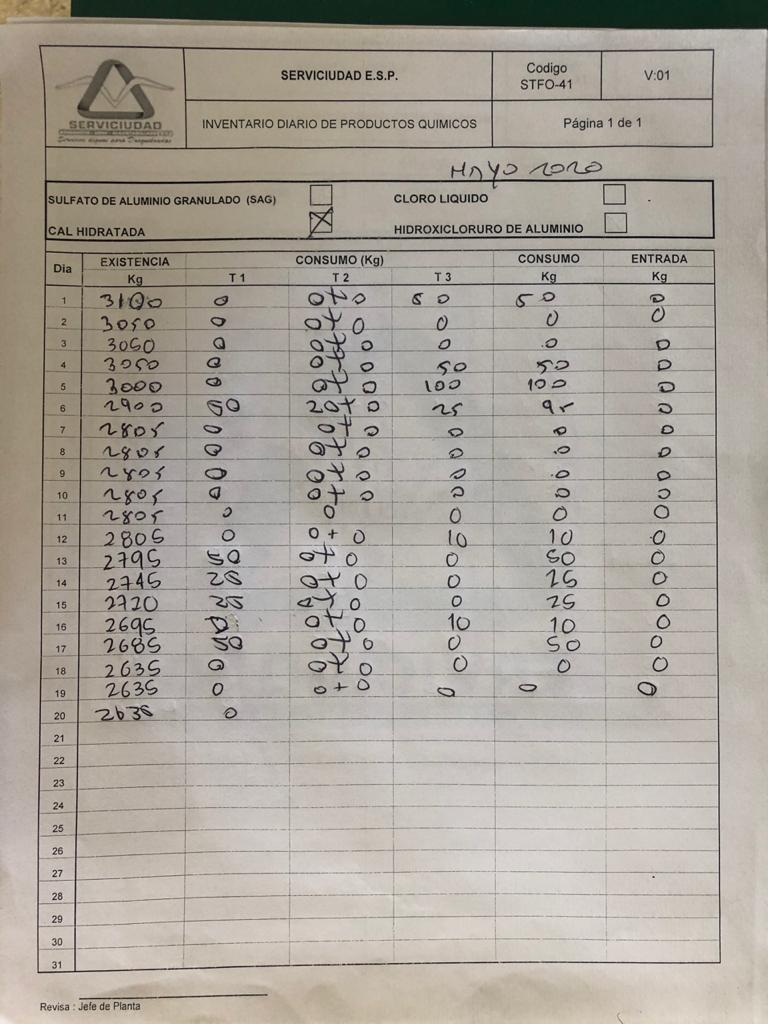 SERVICIUDAD E.S.P.
Codigo STFO-41
V:01
SERVICIUDAD
INVENTARIO DIARIO DE PRODUCTOS QUIMICOS
Página 1 de 1
MAYO 2020
SULFATO DE ALUMINIO GRANULADO (SAG)
CLORO LIQUIDO
CAL HIDRATADA X
HIDROXICLORURO DE ALUMINIO
Dia EXISTENCIA CONSUMO (Kg) CONSUMO ENTRADA
Kg T 1 T 2 T 3 Kg Kg
1 3100 0 0+0 50 50 0
2 3050 0 0+0 0 0 0
3 3050 0 0+0 0 0 0
4 3050 0 0+0 50 50 0
5 3000 0 0+0 100 100 0
6 2900 50 20+0 25 95 0
7 2805 0 0+0 0 0 0
8 2805 0 0+0 0 0 0
9 2805 0 0+0 0 0 0
10 2805 0 0+0 0 0 0
11 2805 0 0 0 0 0
12 2805 0 0+0 10 10 0
13 2795 50 0+0 0 50 0
14 2745 25 0+0 0 25 0
15 2720 25 0+0 0 25 0
16 2695 0 0+0 10 10 0
17 2685 50 0+0 0 50 0
18 2635 0 0+0 0 0 0
19 2635 0 0+0 0 0 0
20 2635 0
21
22
23
24
25
26
27
28
29
30
31
Revisa : Jefe de Planta